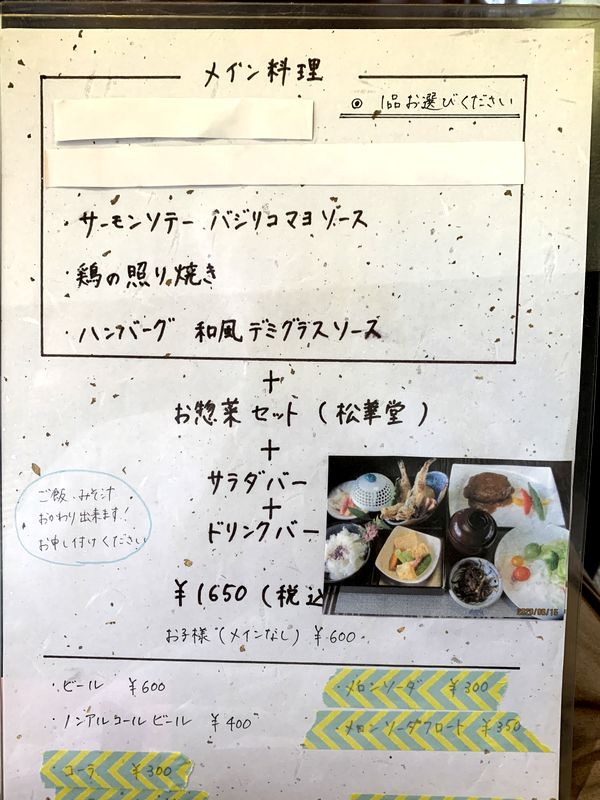 メイン料理
◎ 1品お選びください
・サーモンソテー バジリコマヨソース
・鶏の照り焼き
・ハンバーグ 和風デミグラスソース
+
お惣菜セット (松華堂)
+
サラダバー
+
ドリンクバー
ご飯、みそ汁
おかわり出来ます!
お申し付けください
¥1650 (税込
2020/06/15
お子様 (メインなし) ¥600
・ビール ¥600
・メロンソーダ ¥300
・ノンアルコールビール ¥400
・メロンソーダフロート ¥350
コーラ ¥300